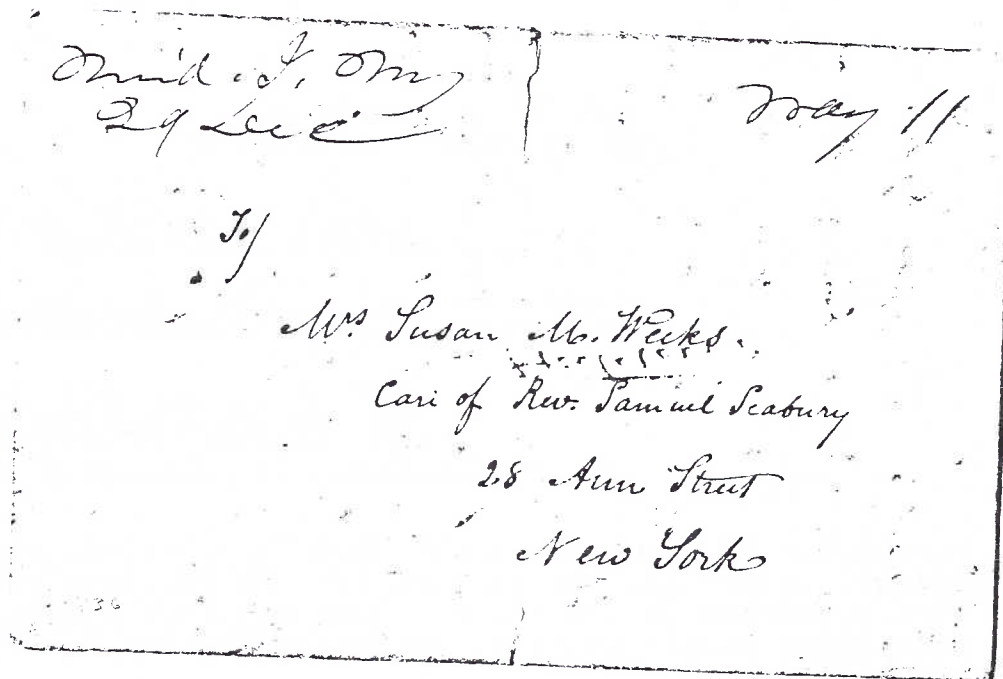 29 Dec
May 11
To/
Mrs Susan M. Weeks.
Care of Rev. Samuel Seabury
28 Ann Street
New York
36